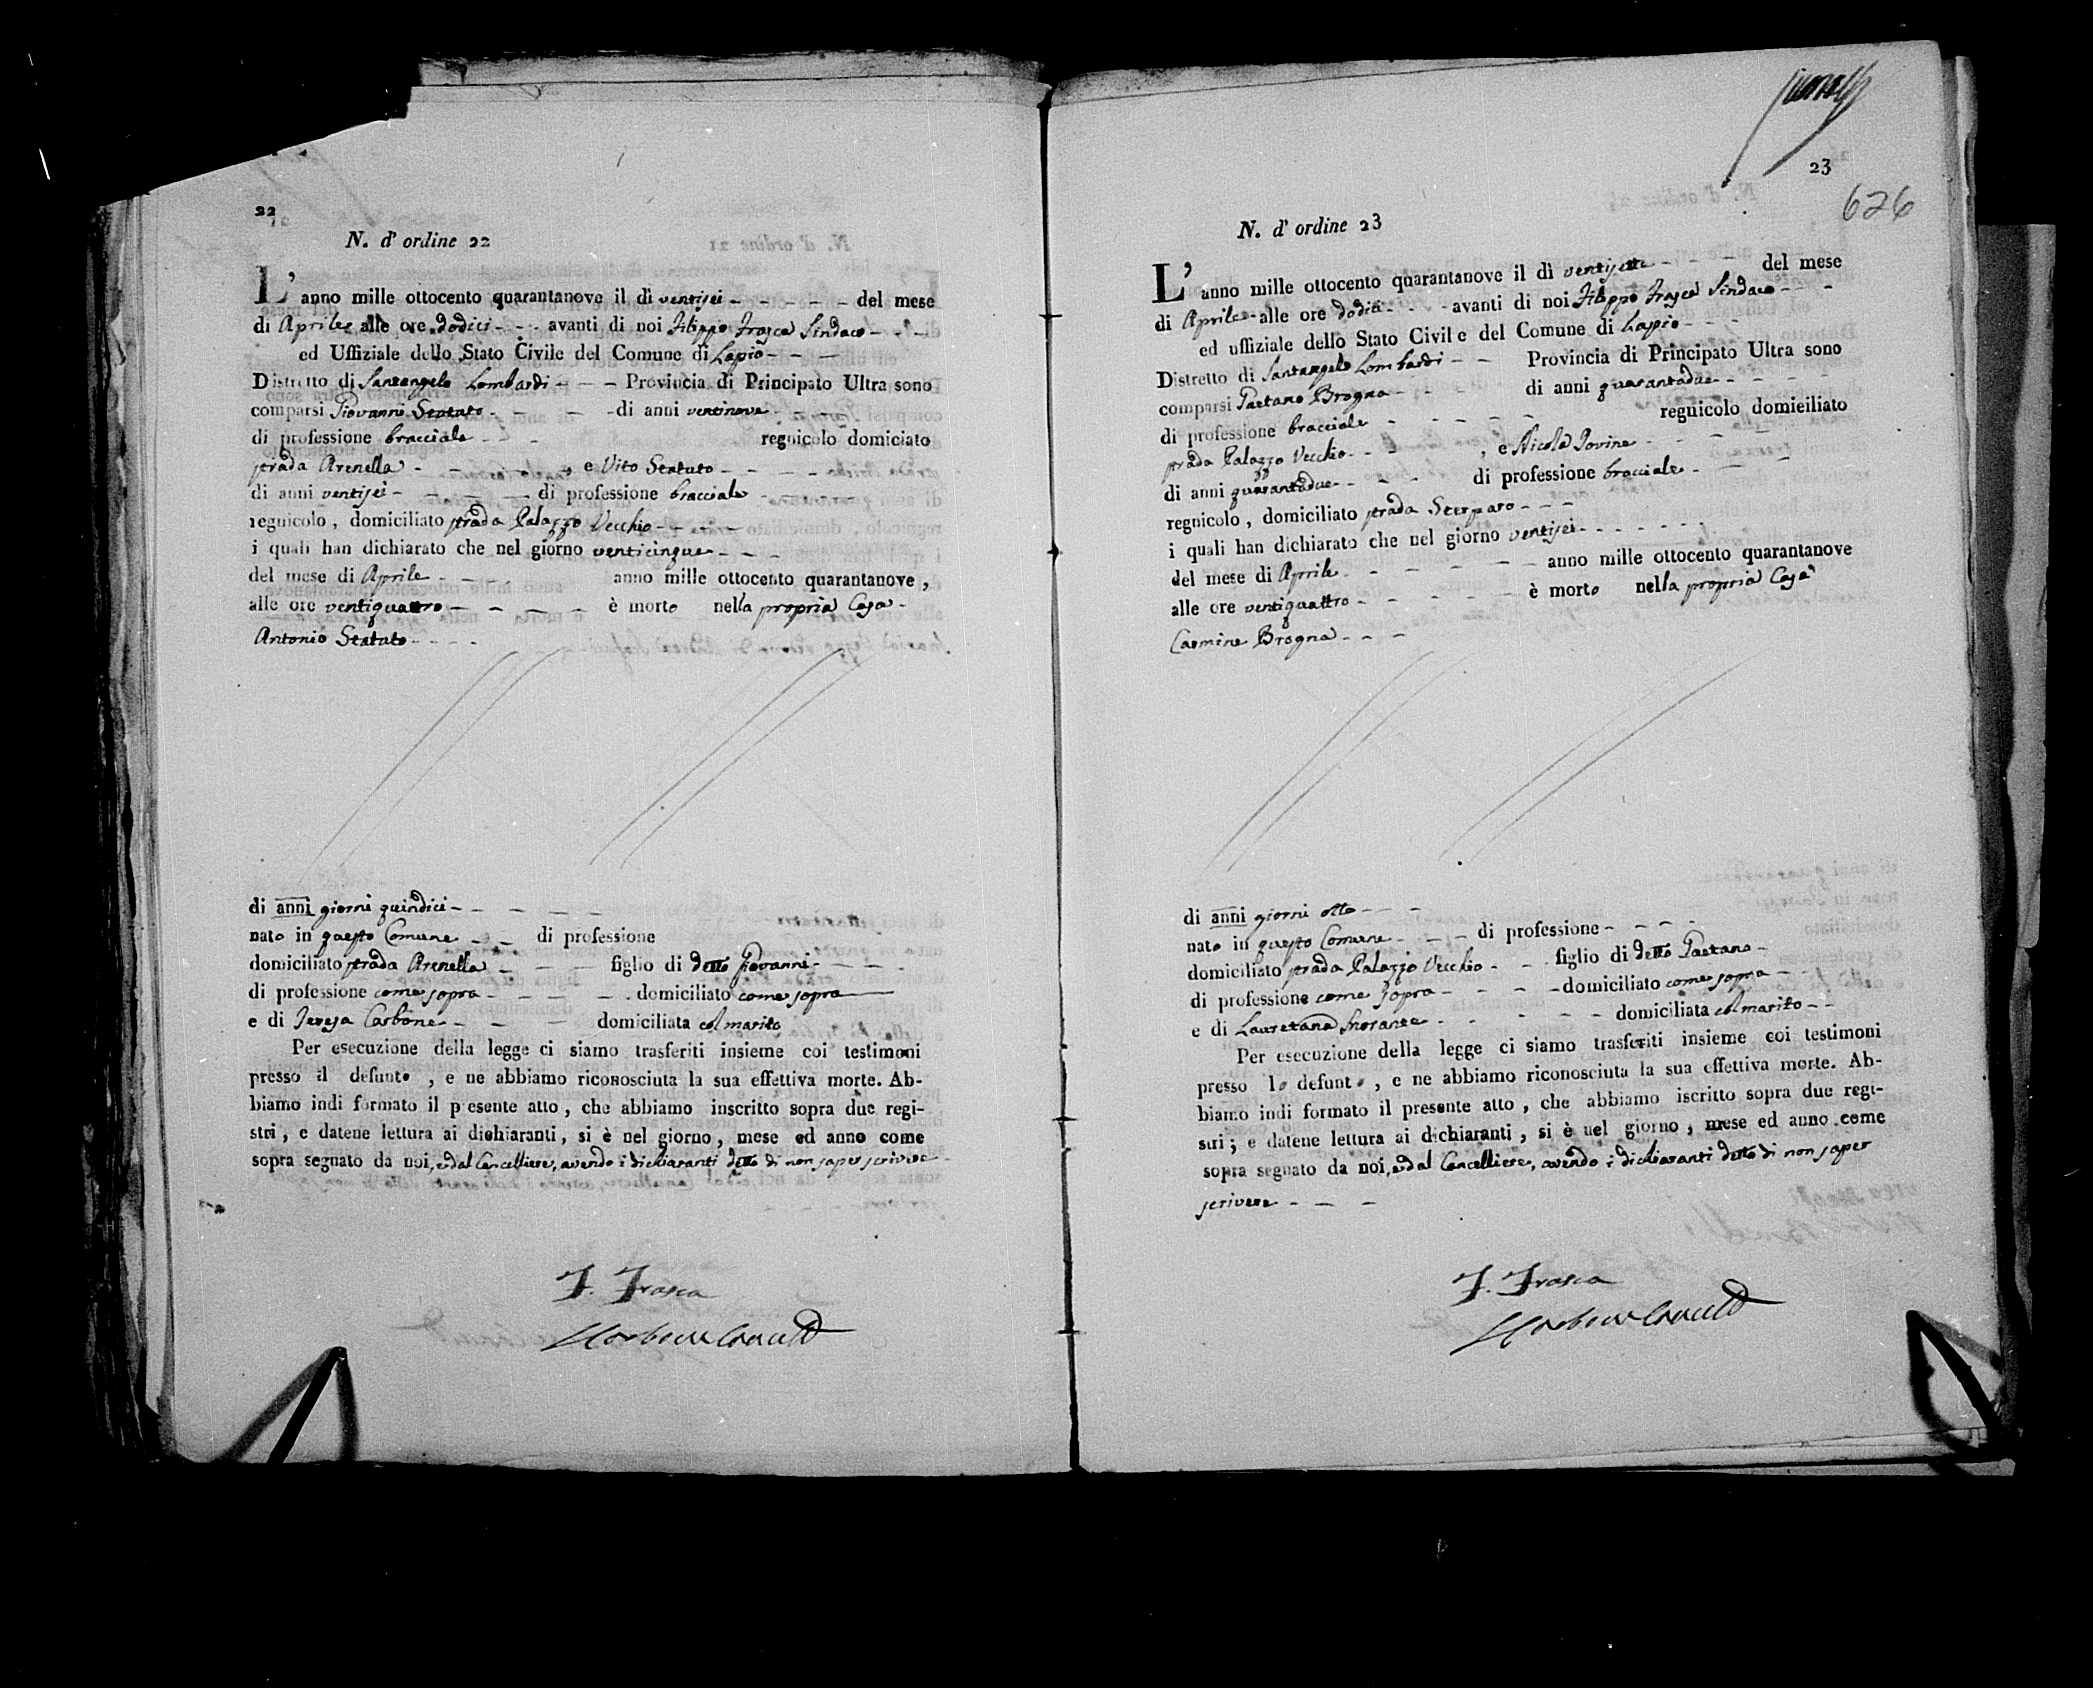 22
N. d' ordine 22
L'anno mille ottocento quarantanove il dì ventisei - - - - - del mese
di Aprile alle ore dodici - - - avanti di noi Filippo Frasca Sindaco - - -
ed Uffiziale dello Stato Civile del Comune di Lapio - - -
Distretto di Santangelo Lombardi - - - Provincia di Principato Ultra sono
comparsi Giovanni Statuto - - - di anni ventinove - - -
di professione bracciale - - - regnicolo domiciato
strada Arenella - - - , e Vito Statuto - - - -
di anni ventisei - - - - di professione bracciale -
regnicolo , domiciliato strada Palazzo Vecchio - - - -
i quali han dichiarato che nel giorno venticinque - - -
del mese di Aprile - - - - anno mille ottocento quarantanove ,
alle ore ventiquattro - - - - è morto nella propria Casa -
Antonio Statuto - - - -
di anni giorni quindici - - - - -
nato in questo Comune - - di professione
domiciliato strada Arenella - - - figlio di detto Giovanni - - - -
di professione come sopra - - - - - domiciliato come sopra
e di Teresa Carbone - - - domiciliata col marito
Per esecuzione della legge ci siamo trasferiti insieme coi testimoni
presso il defunto , e ne abbiamo riconosciuta la sua effettiva morte. Ab-
biamo indi formato il presente atto , che abbiamo inscritto sopra due regi-
stri , e datene lettura ai dichiaranti , si è nel giorno , mese ed anno come
sopra segnato da noi, e dal Cancelliere, avendo i dichiaranti detto di non saper scrivere
F. Frasca
23
626
N. d' ordine 23
L'anno mille ottocento quarantanove il dì ventisette - - - del mese
di Aprile - alle ore dodici - - - avanti di noi Filippo Frasca Sindaco - - -
ed uffiziale dello Stato Civile del Comune di Lapio - - -
Distretto di Santangelo Lombardi - - Provincia di Principato Ultra sono
comparsi Gaetano Brogna - - - di anni quarantadue - - - - -
di professione bracciale - - - - - regnicolo domieiliato
strada Palazzo Vecchio - - - , e Nicola Iovine - - - -
di anni quarantadue - - - - di professione bracciale - - -
regnicolo , domiciliato strada Sterparo - - -
i quali han dichiarato che nel giorno ventisei - - - - - -
del mese di Aprile - - - - - - anno mille ottocento quarantanove
alle ore ventiquattro - - - - - è morto nella propria Casa
Carmine Brogna - - -
di anni giorni otto - - -
nato in questo Comune - - - di professione - - - -
domiciliato strada Palazzo Vecchio - - - figlio di detto Gaetano -
di professione come sopra - - - - domiciliato come sopra - - -
e di Lauretana - - - - - domiciliata col marito - -
Per esecuzione della legge ci siamo trasferiti insieme coi testimoni
presso lo defunto , e ne abbiamo riconosciuta la sua effettiva morte. Ab-
biamo indi formato il presente atto , che abbiamo iscritto sopra due regi-
stri ; e datene lettura ai dichiaranti , si è nel giorno , mese ed anno come
sopra segnato da noi, e dal Cancelliere, avendo i dichiaranti detto di non saper
scrivere - - -
F. Frasca